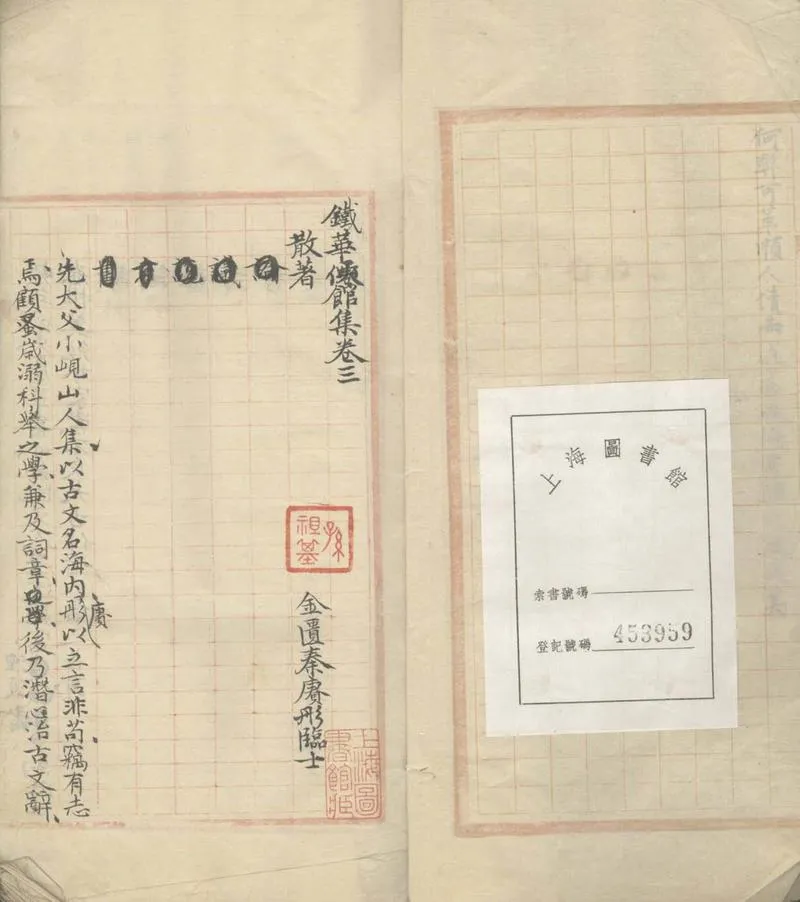 鐵華僊館集卷三
散著
金匱秦賡彤臨士
先大父小峴山人集以古文名海內彤以立言非苟竊有志
賡
焉顧蚤歲溺科舉之學兼及詞章後乃潛心治古文辭
孫祖基
上海圖書館藏
上海圖書館
索書號碼
登記號碼 453959